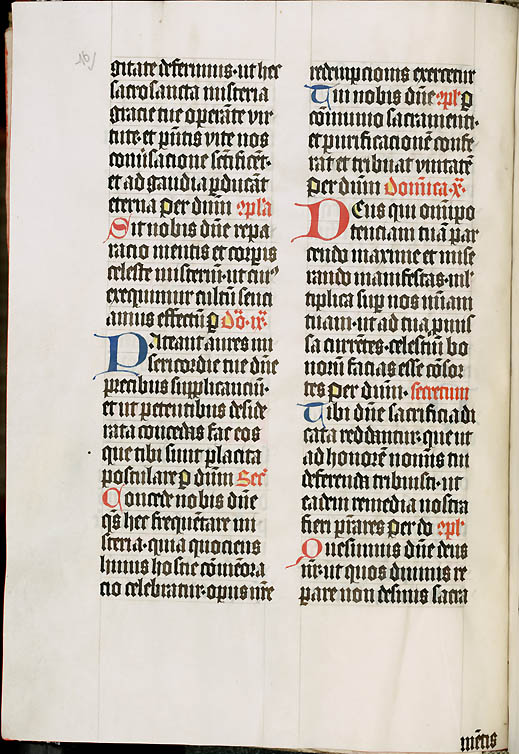 gitate deferimus· ut hec
sacrosancta misteria
gracie tue operãte vir
tute· et p̃ntis vite nos
cõnsacione sc̃tificẽt·
et ad gaudia ꝑducãt
eterna per dnm cõpla
Sit nobis dñe repa
racio mentis et corpis
celeste misteriũ· ut cuiꝰ
exequimur cultũ senci
amus effectũ p dõ· ix·
Pateant aures mi
sericordie tue dñe
precibus supplicanciũ·
et ut petentibus deside
rata concedas fac eos
que tibi sunt placita
postulare p dñm Secͬ
Concede nobis dñe
q̃s hec frequẽtare mi
steria· quia quociens
huius hostie cõmẽora
cio celebratur· opus nr̃e
redempcionis exercetur
Tui nobis dñe cpl̃ p
cõmunio sacramenti·
et purificacionẽ confe
rat et tribuat vnitatẽ
per dnm Domĩca· x·
Deus qui omĩpo
tenciam tuã par
cendo maxime et mise
rando manifestas· ml̃
tiplica suꝑ nos mĩam
tuam· ut ad tua ꝓmis
sa currẽtes· celestiũ bo
norũ facias esse cõsor
tes per dnm· secretum
Tibi dñe sacrificia di
cata reddantur· que ut
ad honorẽ nominis tui
deferenda tribuisti· ut
eadem remedia nostra
fieri p̃stares per do cpl̃
Quesumus dñe deus
nr̃· ut quos diuinis re
pare non desinis sacra
mẽtis